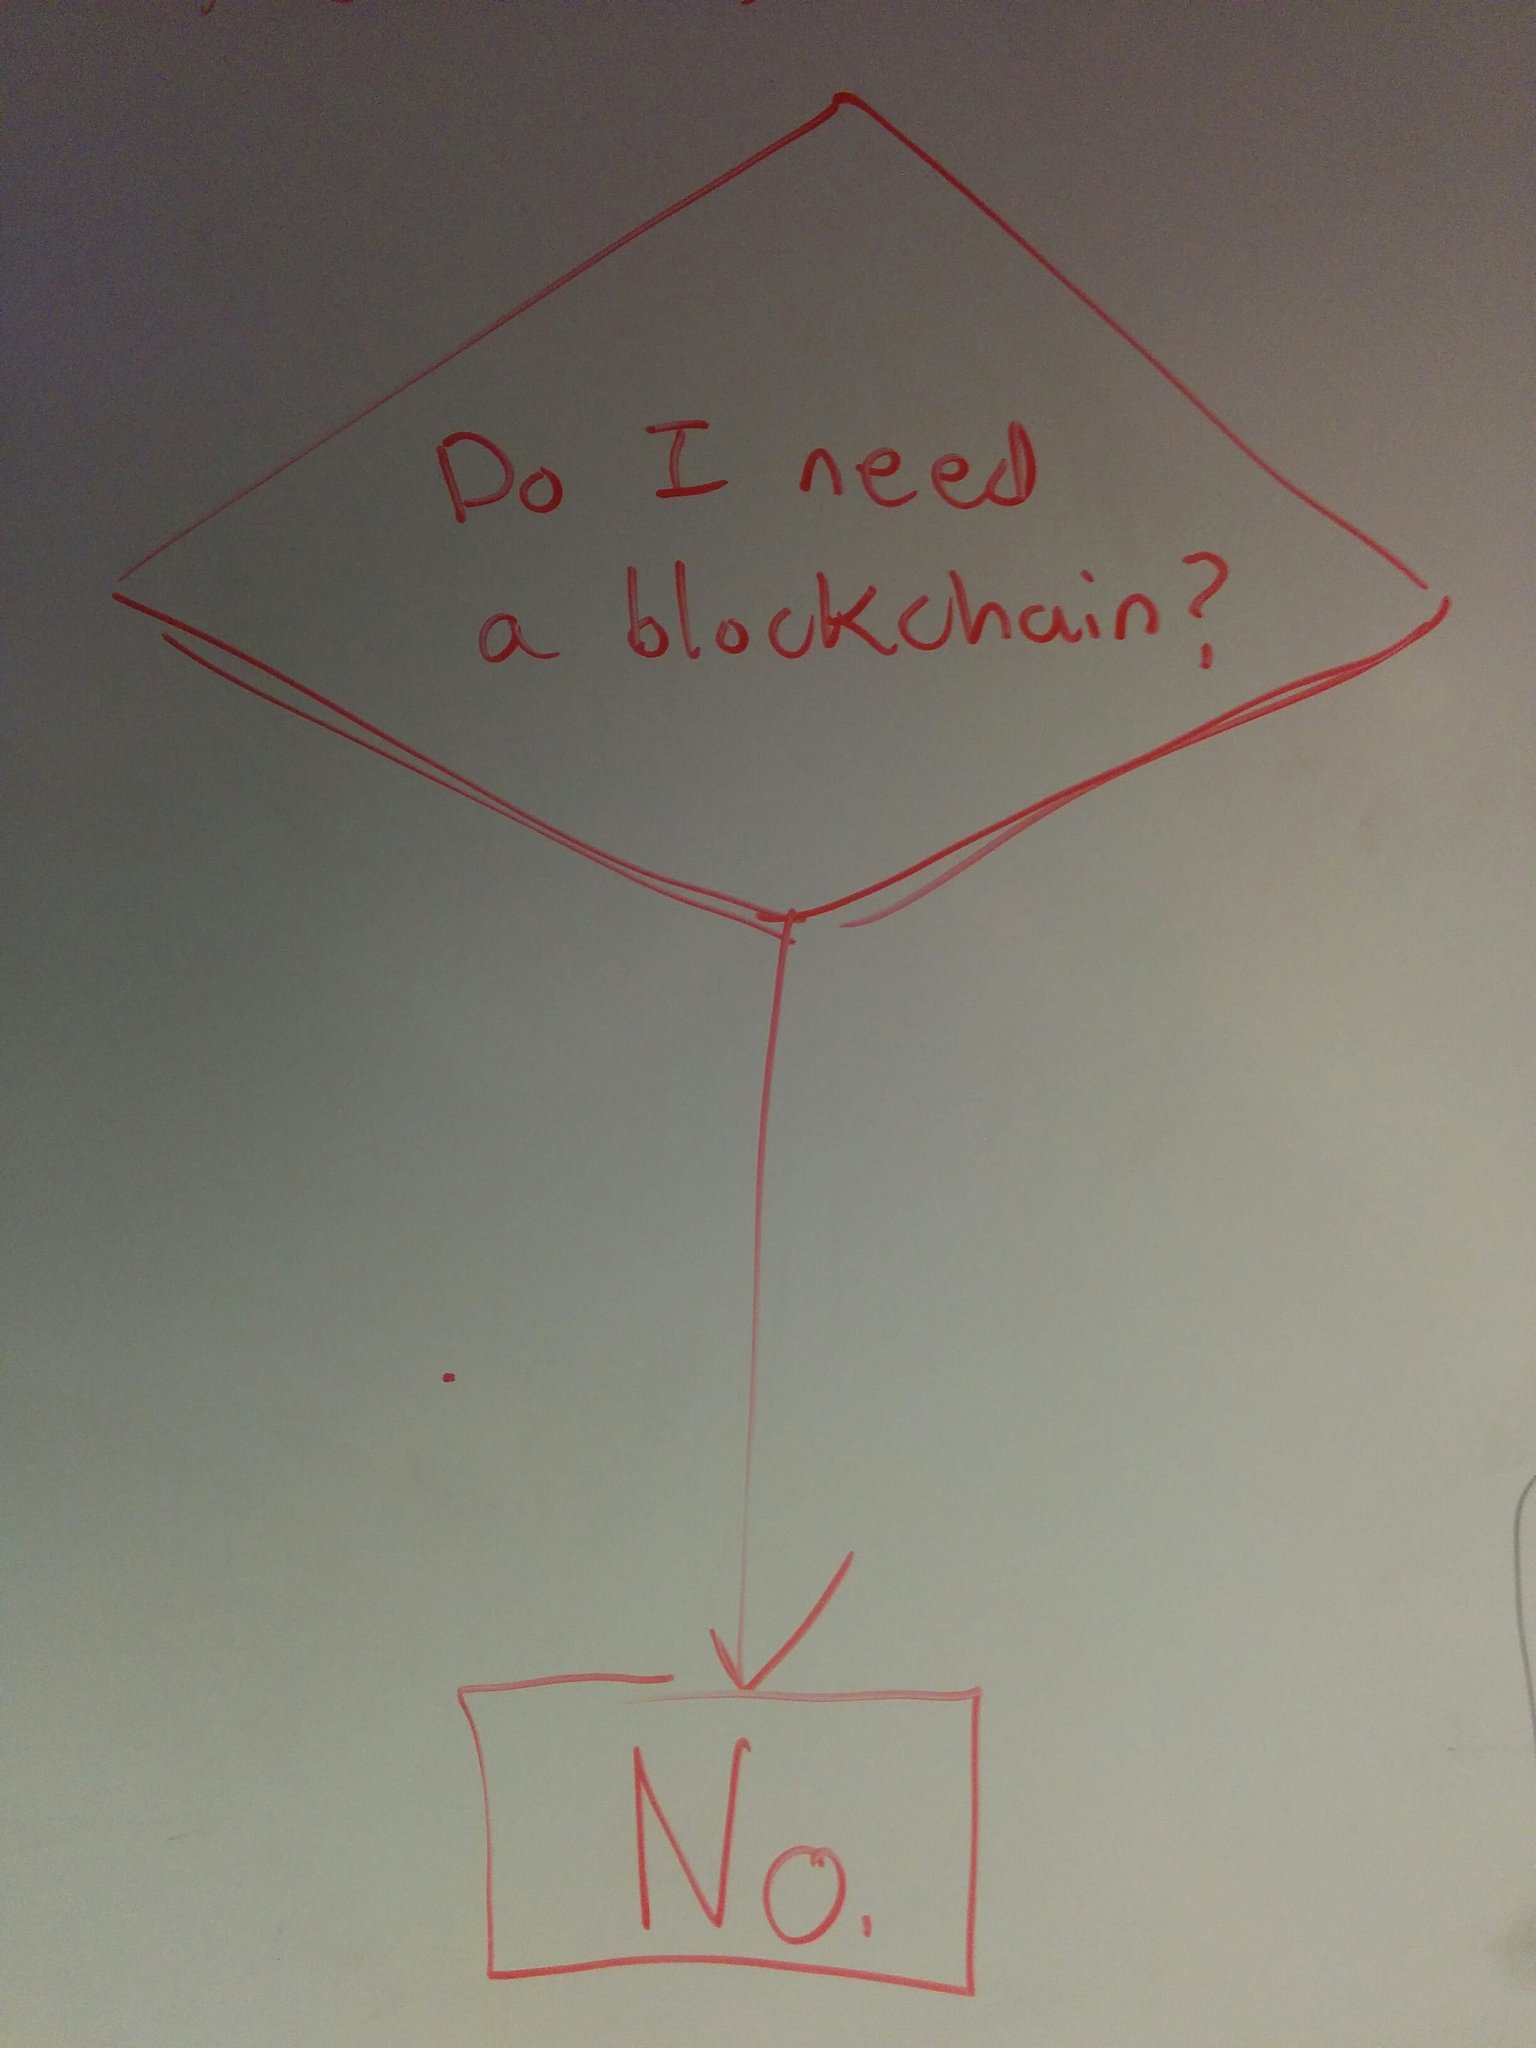 Do I need
a blockchain?
No.